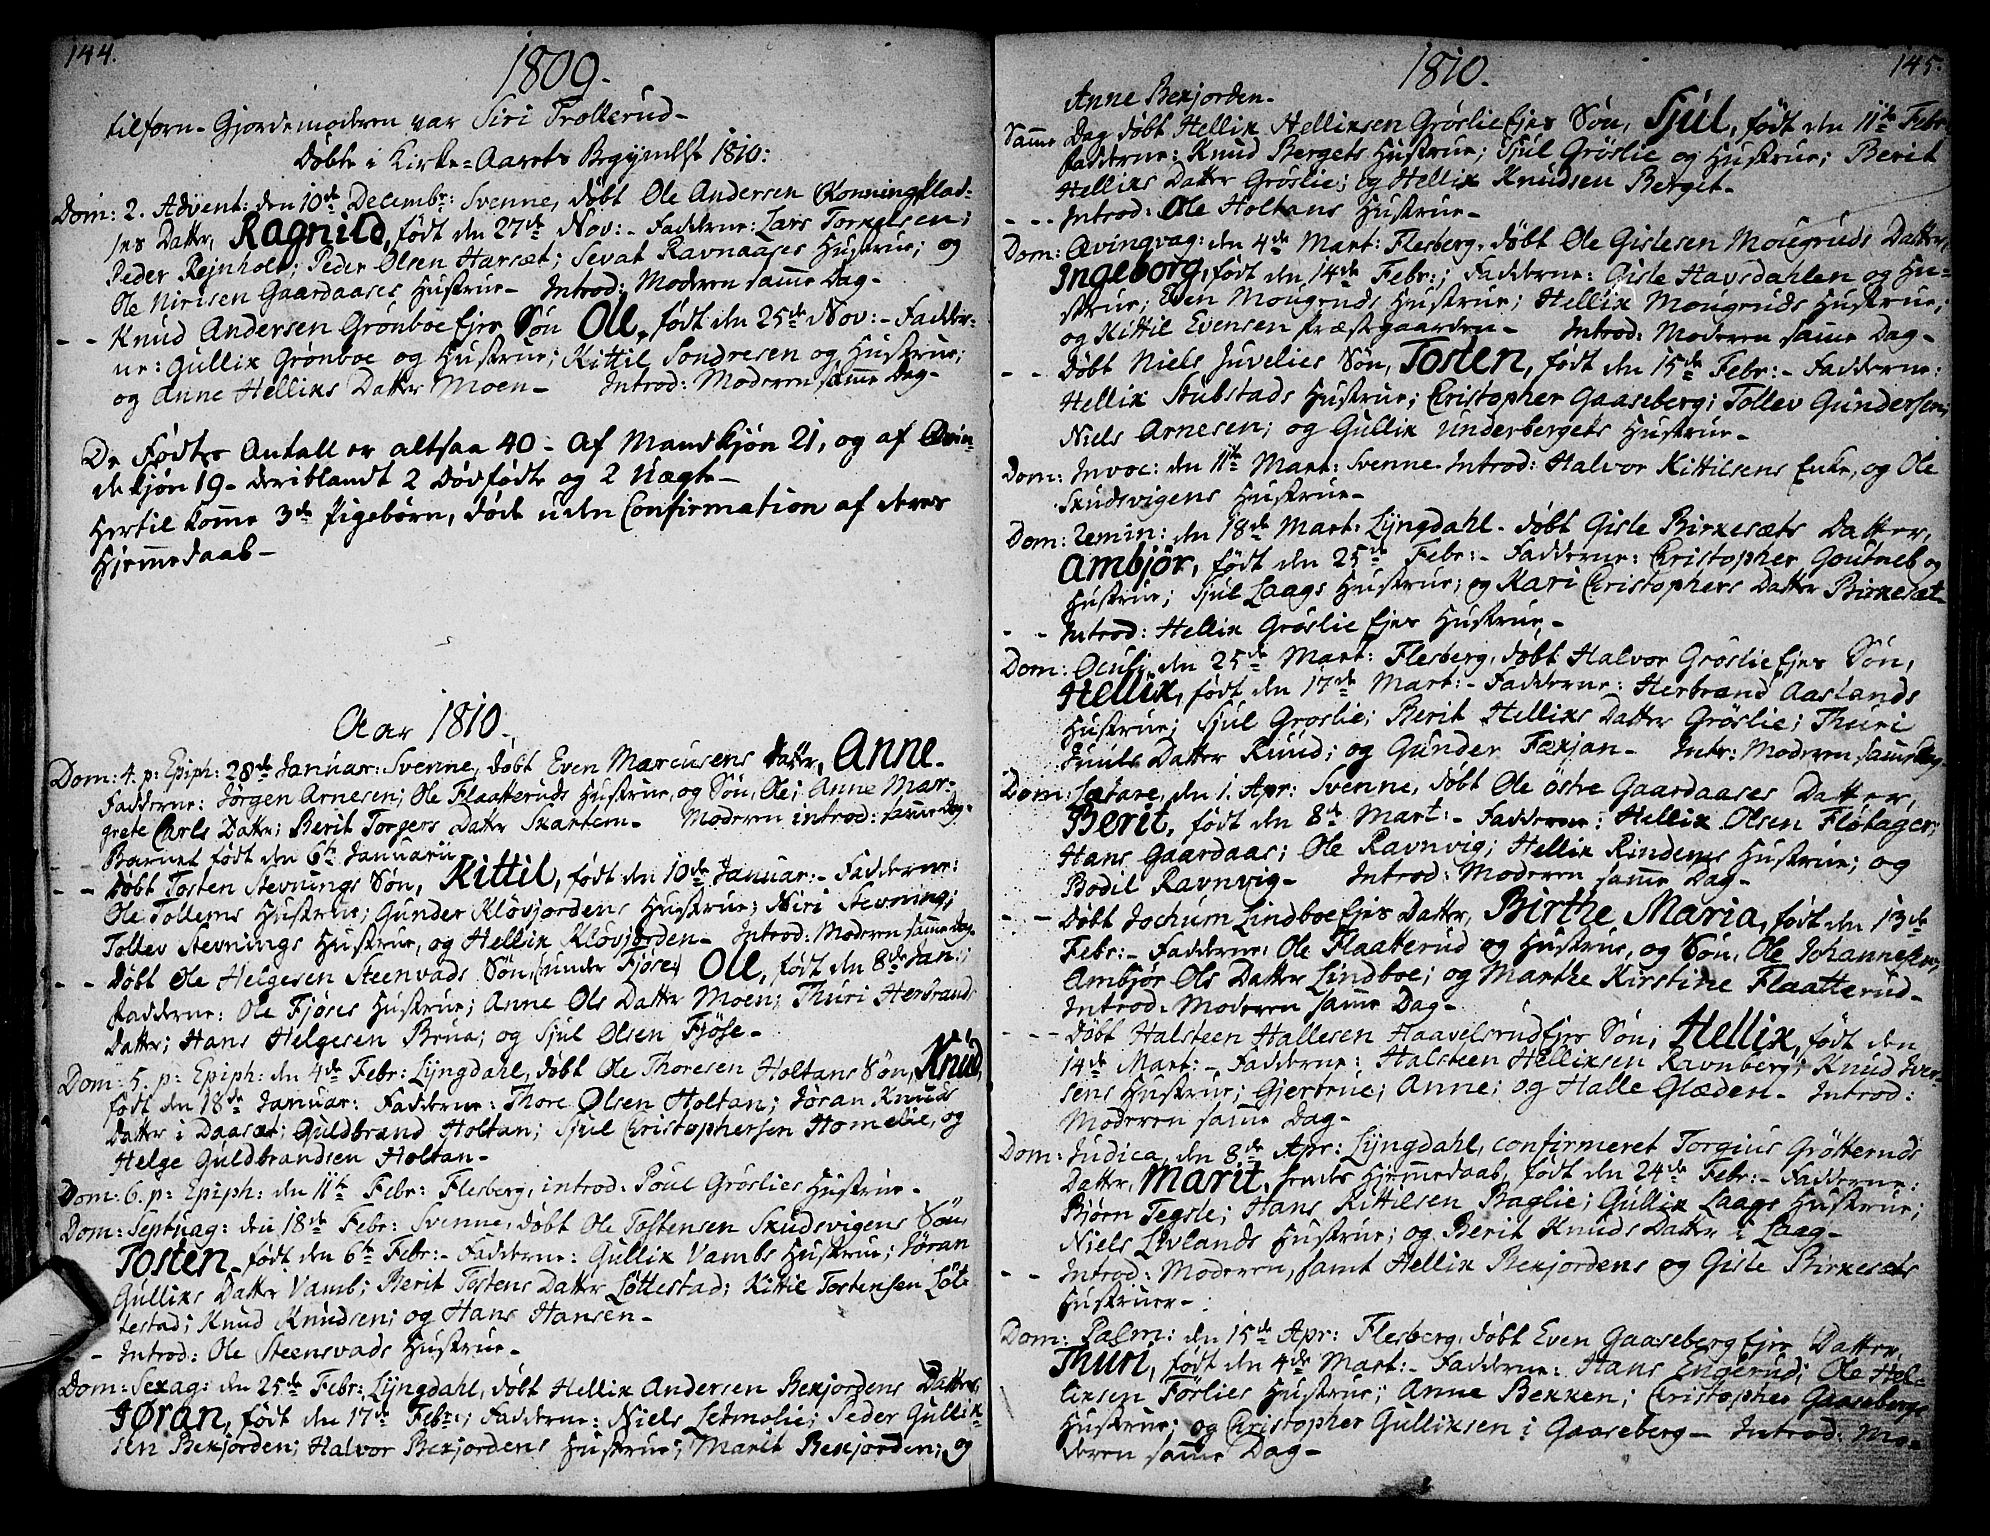 144.
1809.
tilforn- Gjordemoderen var Siri Trollerud-
Døbte i Kirke-Aarets Begÿnelse 1810:
Dom: 2. Advent: den 10de Decembr: Svenne, døbt Ole Andersen
ses Datter, Ragnild, født den 27de Nov:- Fadderne: Lars Torkelsen;
Peder Rejnholt; Peder Olsen Harsæt; Sevat Ravnaases Hustrue; og
Ole Nirisen Gaardaases Hustrue- Introd: Moderen same Dag-
- - Knud Andersen Grønboe Ejes Søn Ole, født den 25de Nov:- Fadder-
ne: Gullix Grønboe og Hustrue; Kittil Sondresen og Hustrue;
og Anne Hellixs Datter Moen- Introd: Moderen same Dag-
De Fødtes Antall er altsaa 40- Af Mandkjøn 21, og af Qvin-
dekjøn 19- deriblandt 2 Dødfødte og 2 Uægte-
Hertil komme 3de Pigebørn, døde uden Confirmation af deres
Hjemmedaab-
Aar 1810.
Dom: 4. p: Epiph: 28de Januar: Svenne, døbt Even Marcusens Datter, Anne-
Fadderne: Jørgen Arnesen; Ole Flaatteruds Hustrue, og Søn, Ole; Anne Mar-
grete Carls Datter; Berit Torgers Datter Skartem- Moderen introd: same Dag-
- - Barnet født den 6te Januarii
- - Døbt Tosten Stevnings Søn, Kittil, født den 10de Januar:- Fadderne:
Ole Tollems Hustrue; Gunder Kløvjordens Hustrue; Niri Stevning;
Tollev Stevnings Hustrue, og Hellix Kløvjorden- Introd: Moderen same Dag-
- - Døbt Ole Helgesen Steenvads Søn, (under Fjøse) Ole, født den 8de Jan:;
Fadderne: Ole Fjøses Hustrue; Anne Ols Datter Moen; Thuri Herbrands
Datter; Hans Helgesen Brua; og Sjul Olsen Fjøse-
Dom: 5. p: Epiph: den 4de Febr: Lÿngdahl, døbt Ole Thoresen Holtans Søn, Knud,
født den 18de Januar: Fadderne: Thore Olsen Holtan; Jøran Knuds
Datter i Daaset; Guldbrand Holtan; Sjul Christophersen Homelie, og
Helge Guldbrandsen Holtan-
Dom: 6. p: Epiph: den 11te Febr: Flesberg, introd: Poul Grøslies Hustrue-
Dom: Septuag: den 18de Febr: Svenne, døbt Ole Tostensen Skudsvigens Søn
Tosten- født den 6te Febr:- Fadderne: Gullix Vambs Hustrue; Jøran
Gullixs Datter Vamb; Berit Tostens Datter Løttestad; Kittil Tostensen Løt-
testad; Knud Knudsen; og Hans Hansen-
- - Introd: Ole Steensvads Hustrue-
Dom: Sexag: den 25de Febr: Lÿngdahl, døbt Hellix Andersen Bexjordens Datter
Jøran, født den 17de Febr:; Fadderne: Niels Letmolie; Peder Gullix-
sen Bexjorden; Halvor Bexjordens Hustrue; Marit Bexjorden; og
1810.
145.
Anne Bexjorden-
Same Dag døbt Hellix Hellixsen Grøslie Ejes Søn, Sjul, født den 11te Febr
Fadderne: Knud Bergets Hustrue; Sjul Grøslie og Hustrue; Berit
Hellixs Datter Grøslie; og Hellix Knudsen Berget-
- - - Introd: Ole Holtans Hustrue-
Dom: Qvingvag: den 4de Mart: Flesberg, døbt Ole Gislesen Mougruds Datter,
Ingeborg, født den 14de Febr:; Fadderne: Gisle Havsdahlen og Hu-
strue; Even Mougruds Hustrue; Hellix Mougruds Hustrue;
og Kittil Evensen Præstegaarden- Introd: Moderen same Dag-
- - Døbt Niels Juvelies Søn, Tosten, født den 15de Febr:- Fadderne:
Hellix Stubstads Hustrue; Christopher Gaaseberg; Tollev Gundersen;
Niels Arnesen; og Gullix Underbergets Hustrue-
Dom: Invoc: den 11te Mart: Svenne- Introd: Halvor Kittilsens Enke, og Ole
Skudsvigens Hustrue-
Dom: Remin: den 18de Mart: Lÿngdahl- døbt Gisle Birkesæts Datter,
Ambjør, født den 25de Febr:- Fadderne: Christopher Goutneb og
Hustrue; Sjul Laags Hustrue; og Kari Christophers Datter Birkesæt-
- - Introd: Hellix Grøslie Ejes Hustrue-
Dom: Oculi, den 25de Mart: Flesberg, døbt Halvor Grøslie Ejes Søn,
Hellix, født den 17de Mart:- Fadderne: Herbrand Aaslands
Hustrue; Sjul Grøslie; Berit Hellixs Datter Grøslie; Thuri
Juuls Datter Ruud; og Gunder Foxjan- Intr: Moderen same Dag
Dom: Lætare, den 1. Apr: Svenne, døbt Ole østre Gaardaases Datter,
Berit, født den 8de Mart:- Fadderne: Hellix Olsen Fløtager;
Hans Gaardaas; Ole Ravnvig; Hellix Rindenes Hustrue; og
Bodil Ravnvig- Introd: Moderen same Dag-
- - Døbt Jochum Lindboe Ejes Datter, Birthe Maria, født den 13de
Febr:- Fadderne: Ole Flaatterud og Hustrue, og Søn, Ole Johannes;
Ambjør Ols Datter Lindboe; og Marthe Kirstine Flaatterud-
Introd: Moderen same Dag-
- - - Døbt Halsteen Hallesen Haavelsrud Ejes Søn, Hellix, født den
14de Mart:- Fadderne: Halsteen Hellixsen Ravnberg; Knud Iver-
sens Hustrue; Gjertrue; Anne; og Halle Glæden- Introd:
Moderen same Dag-
Dom: Judica, den 8de Apr: Lÿngdahl, confirmeret Torgius Grøtteruds
Datter, Marit, hendes Hjemmedaab, født den 24de Febr:- Fadderne:
Bjørn Tegsle; Hans Kittilsen Baglie; Gullix Laags Hustrue;
Niels Livlands Hustrue; og Berit Knuds Datter i Laag-
- - Introd: Moderen, samt Hellix Bexjordens og Gisle Birkesæts
Hustruer-
Dom: Palm: den 15de Apr: Flesberg, døbt Even Gaaseberg Ejes Datter,
Thuri, født den 4de Mart:- Fadderne: Hans Engerud; Ole Hel-
lixsen Førlies Hustrue; Anne Bekken; Christopher Gaasebergs
Hustrue; og Christopher Gullixsen i Gaaseberg- Introd: Mo-
deren same Dag-